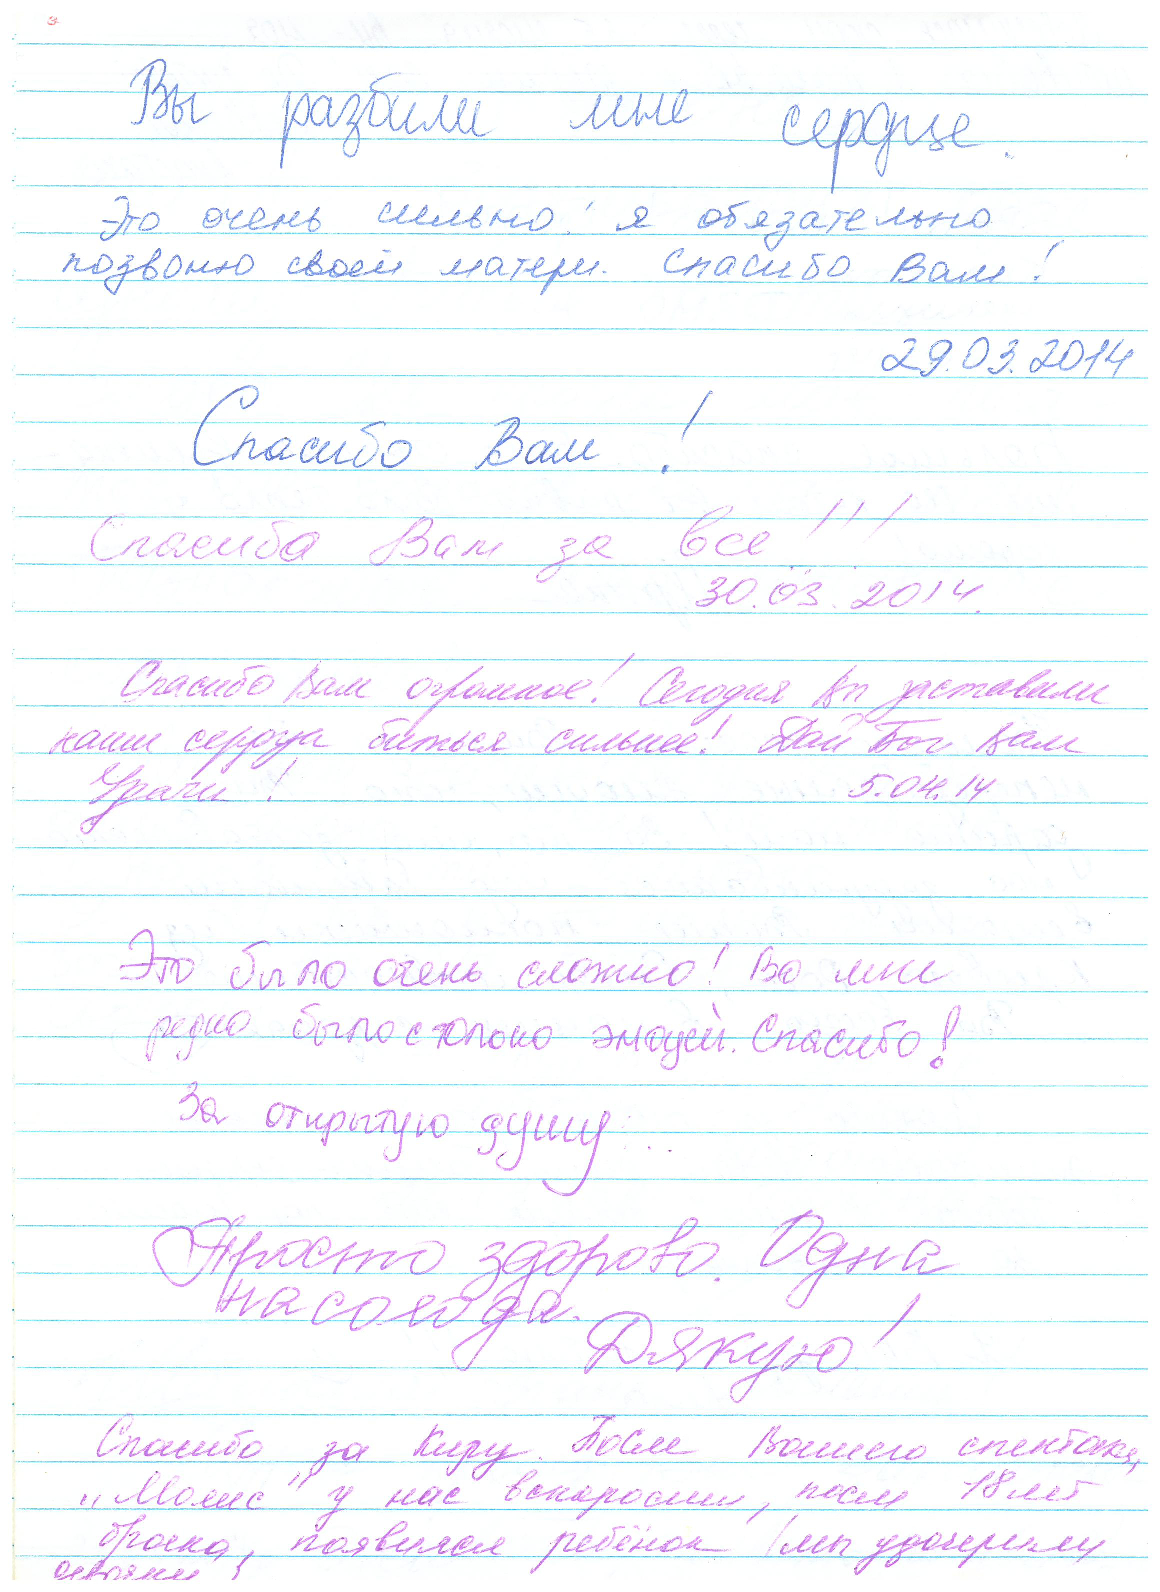 Вы разбили мне сердце.
Это очень сильно! я обязательно
позвоню своей матери. Спасибо Вам!
29.03.2014
Спасибо Вам!
Спасиба Вам за все!!!
30.03.2014.
Спасибо Вам огромное! Сегодня Вы заставили
наши сердца биться сильнее! Дай Бог Вам
Удачи!
5.04.14
Это было очень сложно! Во мне
редко было столько эмоций. Спасибо!
За открытую душу...
Просто здорово. Одна
насолода.
Дякую!
Спасибо за Киру. После Вашего спектакля
„Момис" у нас вскорости, после 18 лет
брака, появился ребёнок (мы удочерили
девочку